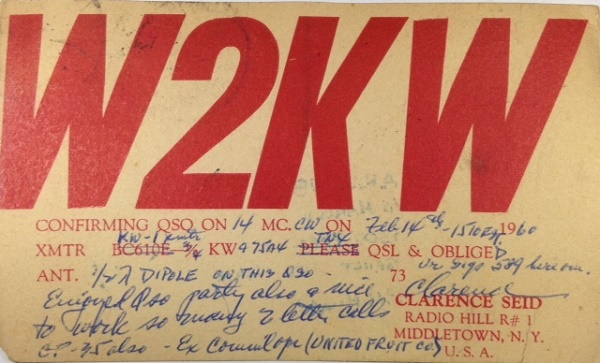 W2KW
CONFIRMING QSO ON 14 MC. CW ON Feb 14th - 1510 EST. 1960
KW-1 xmtr TNX
XMTR BC610E 3/4 KW & 75A4 PLEASE QSL & OBLIGED
ANT. 1/2 λ DIPOLE ON THIS QSO - 73 Ur sigs 559 here om.
Enjoyed Qso party also & nice Clarence
to work so many 2 letter calls CLARENCE SEID
RADIO HILL R# 1
also - Ex Comml ops (UNITED FRUIT CO) MIDDLETOWN, N. Y.
U. S. A.